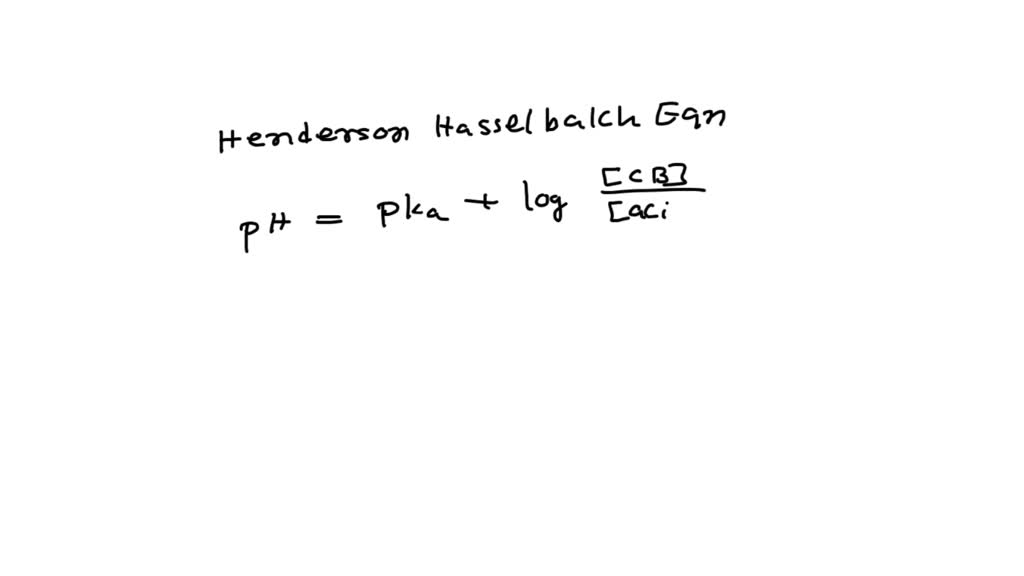 Henderson Hasselbalch Eqn
pH = pka + log [CB]/[aci